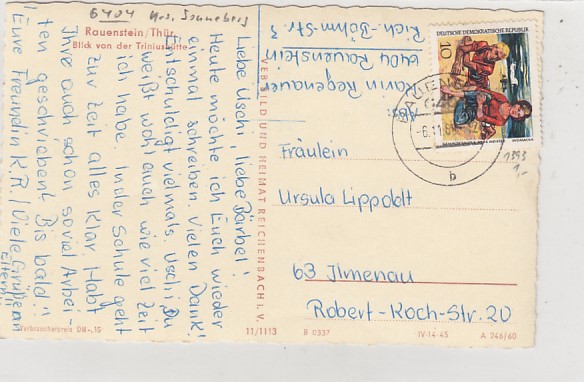 6404 Krs. Sonneberg
Rauenstein/Thür.
Blick von der Triniushütte
Liebe Uschi, liebe Bärbel!
Heute möchte ich Euch wieder
einmal schreiben. Vielen Dank!
Entschuldigt vielmals. Uschi, Du
weißt wohl auch wie viel Zeit
ich habe. In der Schule geht
zur Zeit alles klar. Habt
Ihr auch schon soviel Arbei-
ten geschrieben? Bis bald!
Eure Freundin K.R. / Viele Grüße an
Eltern!!
Verbraucherpreis DM -,15
VEB BILD UND HEIMAT REICHENBACH i. V.
11/1113
B 0337
IV-14-45
A 246/60
Abs.:
Karin Regenauer
6404 Rauenstein
Rich-Böhm-Str. 3
DEUTSCHE DEMOKRATISCHE REPUBLIK
10
-6.11.
b
1393
1,-
Fräulein
Ursula Lippoldt
63 Ilmenau
Robert-Koch-Str. 20